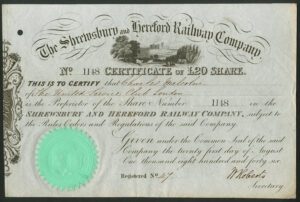 The Shrewsbury and Hereford Railway Company.
No 1148 CERTIFICATE OF £20 SHARE.
THIS IS TO CERTIFY that Charles Malcolm
of The United Service Club London
is the Proprietor of the Share Number 1148 in the
SHREWSBURY AND HEREFORD RAILWAY COMPANY, subject to
the Rules Orders and Regulations of the said Company.
GIVEN under the Common Seal of the said
Company the twenty first day of August
One thousand eight hundred and forty six.
Registered No 47
Secretary